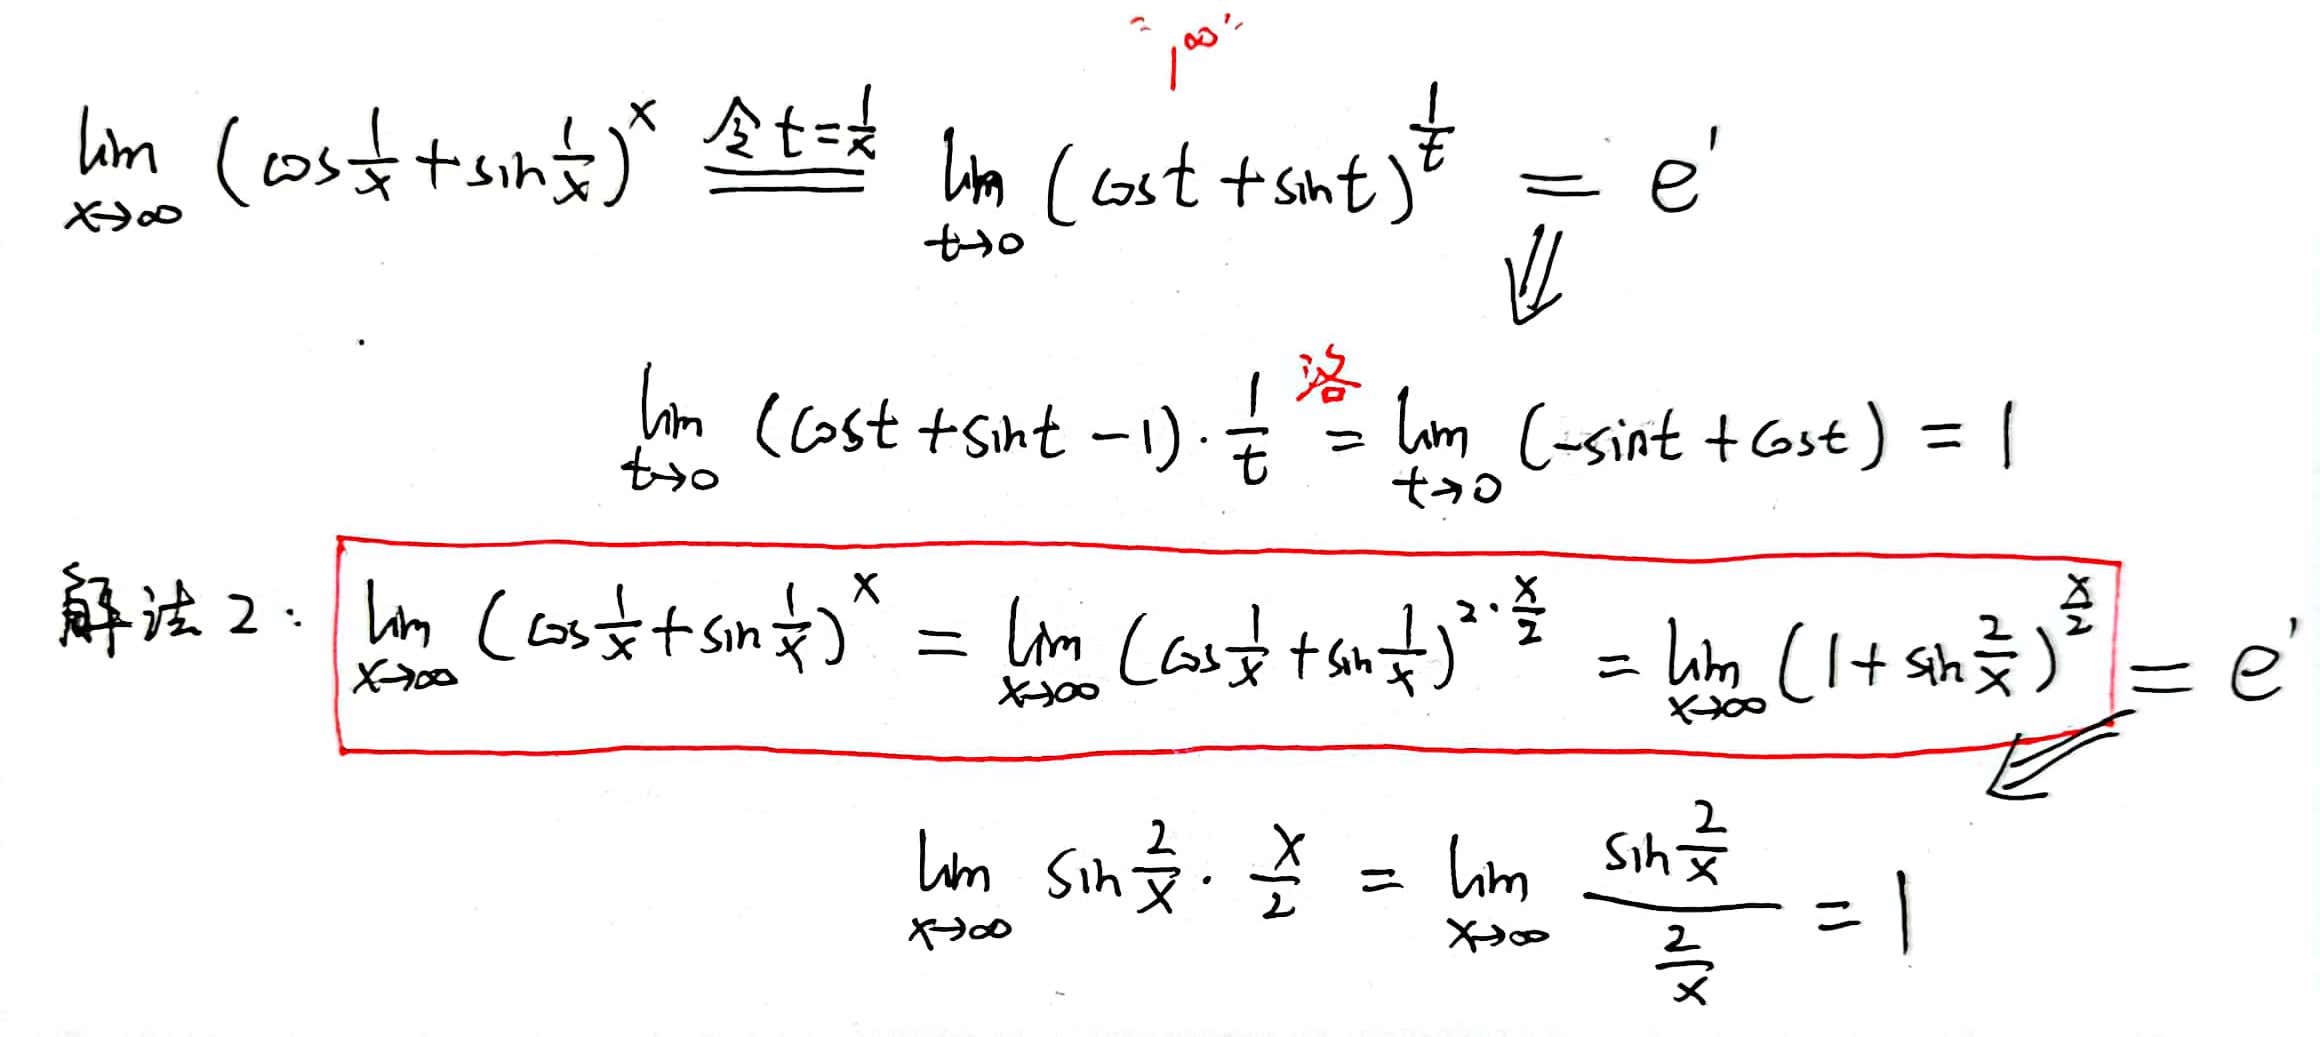 "1^∞"
lim_{x→∞} (cos 1/x + sin 1/x)^x \xlongequal{令 t = 1/x} lim_{t→0} (cos t + sin t)^{1/t} = e^1
⇓
lim_{t→0} (cos t + sin t − 1) · 1/t \overset{洛}{=} lim_{t→0} (−sin t + cos t) = 1
解法2: lim_{x→∞} (cos 1/x + sin 1/x)^x = lim_{x→∞} (cos 1/x + sin 1/x)^{2·x/2} = lim_{x→∞} (1 + sin 2/x)^{x/2} = e^1
lim_{x→∞} sin 2/x · x/2 = lim_{x→∞} \frac{sin 2/x}{2/x} = 1